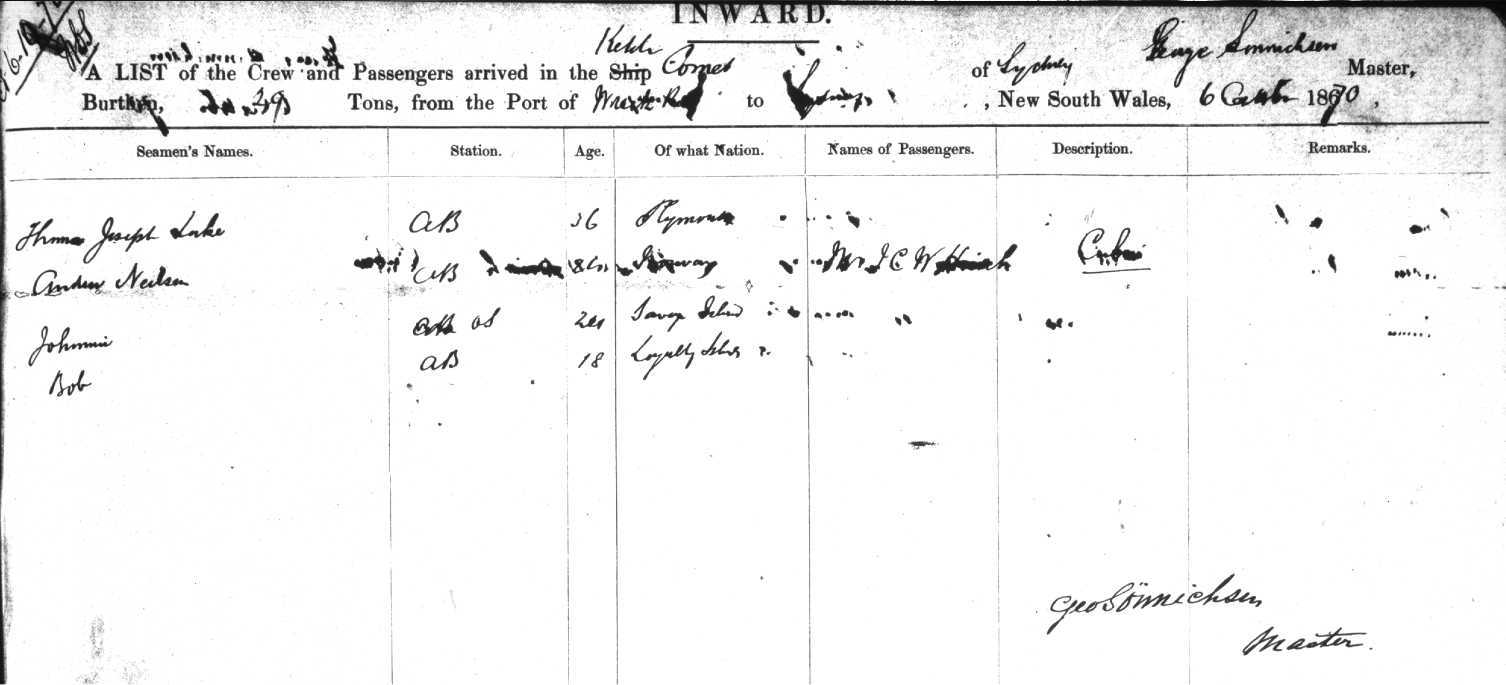 INWARD.
Ketch
A LIST of the Crew and Passengers arrived in the Ship Comet of Sydney George Sonnichsen Master,
Burthen, 39 Tons, from the Port of to Sydney, New South Wales, 6 1870,
Seamen's Names. Station. Age. Of what Nation. Names of Passengers. Description. Remarks.
Thomas Joseph Luke AB 36 Plymouth
Andrew Neilson AB Norway Mr J C W Cabin
Johnnie AB OS Savage Island
Bob AB 18 Loyalty Islds
Geo Sönnichsen
Master.